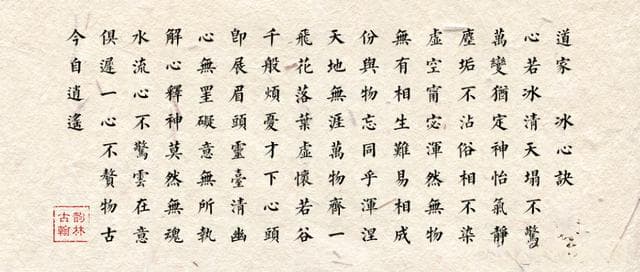 道家 冰心訣
心若冰清天塌不驚
萬變猶定神怡氣靜
塵垢不沾俗相不染
虛空甯宓渾然無物
無有相生難易相成
份與物忘同乎渾涅
天地無涯萬物齊一
飛花落葉虛懷若谷
千般煩憂才下心頭
卽展眉頭靈臺清幽
心無罣礙意無所執
解心釋神莫然無魂
水流心不驚雲在意
俱遲一心不贅物古
今自逍遙
韵林
古翰